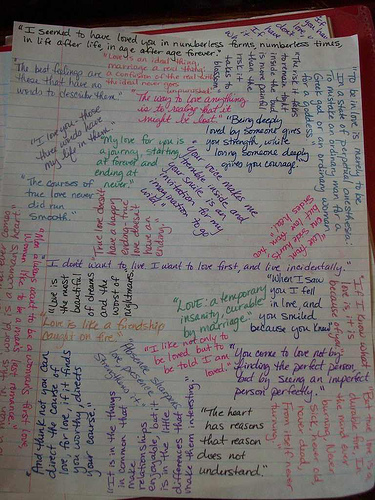 "I seemed to have loved you in numberless forms, numberless times,
in life after life, in age after age forever."
"Love is an ideal thing,
marriage a real thing;
a confusion of the real with
the ideal never goes
unpunished."
"The best feelings are
those that have no
words to describe them."
"The way to love anything
is to realize that it
might be lost."
"And the day came when the
risk it took
to remain tight
inside the bud
was more painful
than the
risk it
takes to
blossom."
"To be in love is merely to be
in a state of perpetual anesthesia:
To mistake an ordinary man for a
Greek god or an ordinary woman
for a goddess."
"Being deeply
loved by someone gives
you strength, while
loving someone deeply
gives you courage."
"My love for you is
a journey, starting
at forever and
ending at
never."
"Your voice makes me
tremble inside and
your smile is an
invitation for my
imagination to go
wild."
"The courses of
true love never
did run
smooth."
"True love doesn't
have a happy
ending; true love
doesn't
have an
ending."
I don't want to live. I want to love first, and live incidentally.
"Love is
the most
beautiful
of dreams
and the
worst of
nightmares."
"When I saw
you I fell
in love, and
you smiled
because you knew."
"LOVE: a temporary
insanity, curable
by marriage."
"Love is like a friendship
caught on fire."
"I like not only to
be loved, but to
be told I am
loved."
"You come to love not by
finding the perfect person,
but by seeing an imperfect
person perfectly."
"If I know what
love is, it is
because of you."
"And think not you can
direct the course of
love, for love, if it finds
you worthy, directs
your course."
"It is in the things
in common that
make
relationships
enjoyable, but it
is in the little
differences that
make them interesting."
"The heart
has reasons
that reason
does not
understand."
"But true love is a
durable fire, In
the mind ever
burning, Never
sick, never old,
never dead,
From itself never
turning."